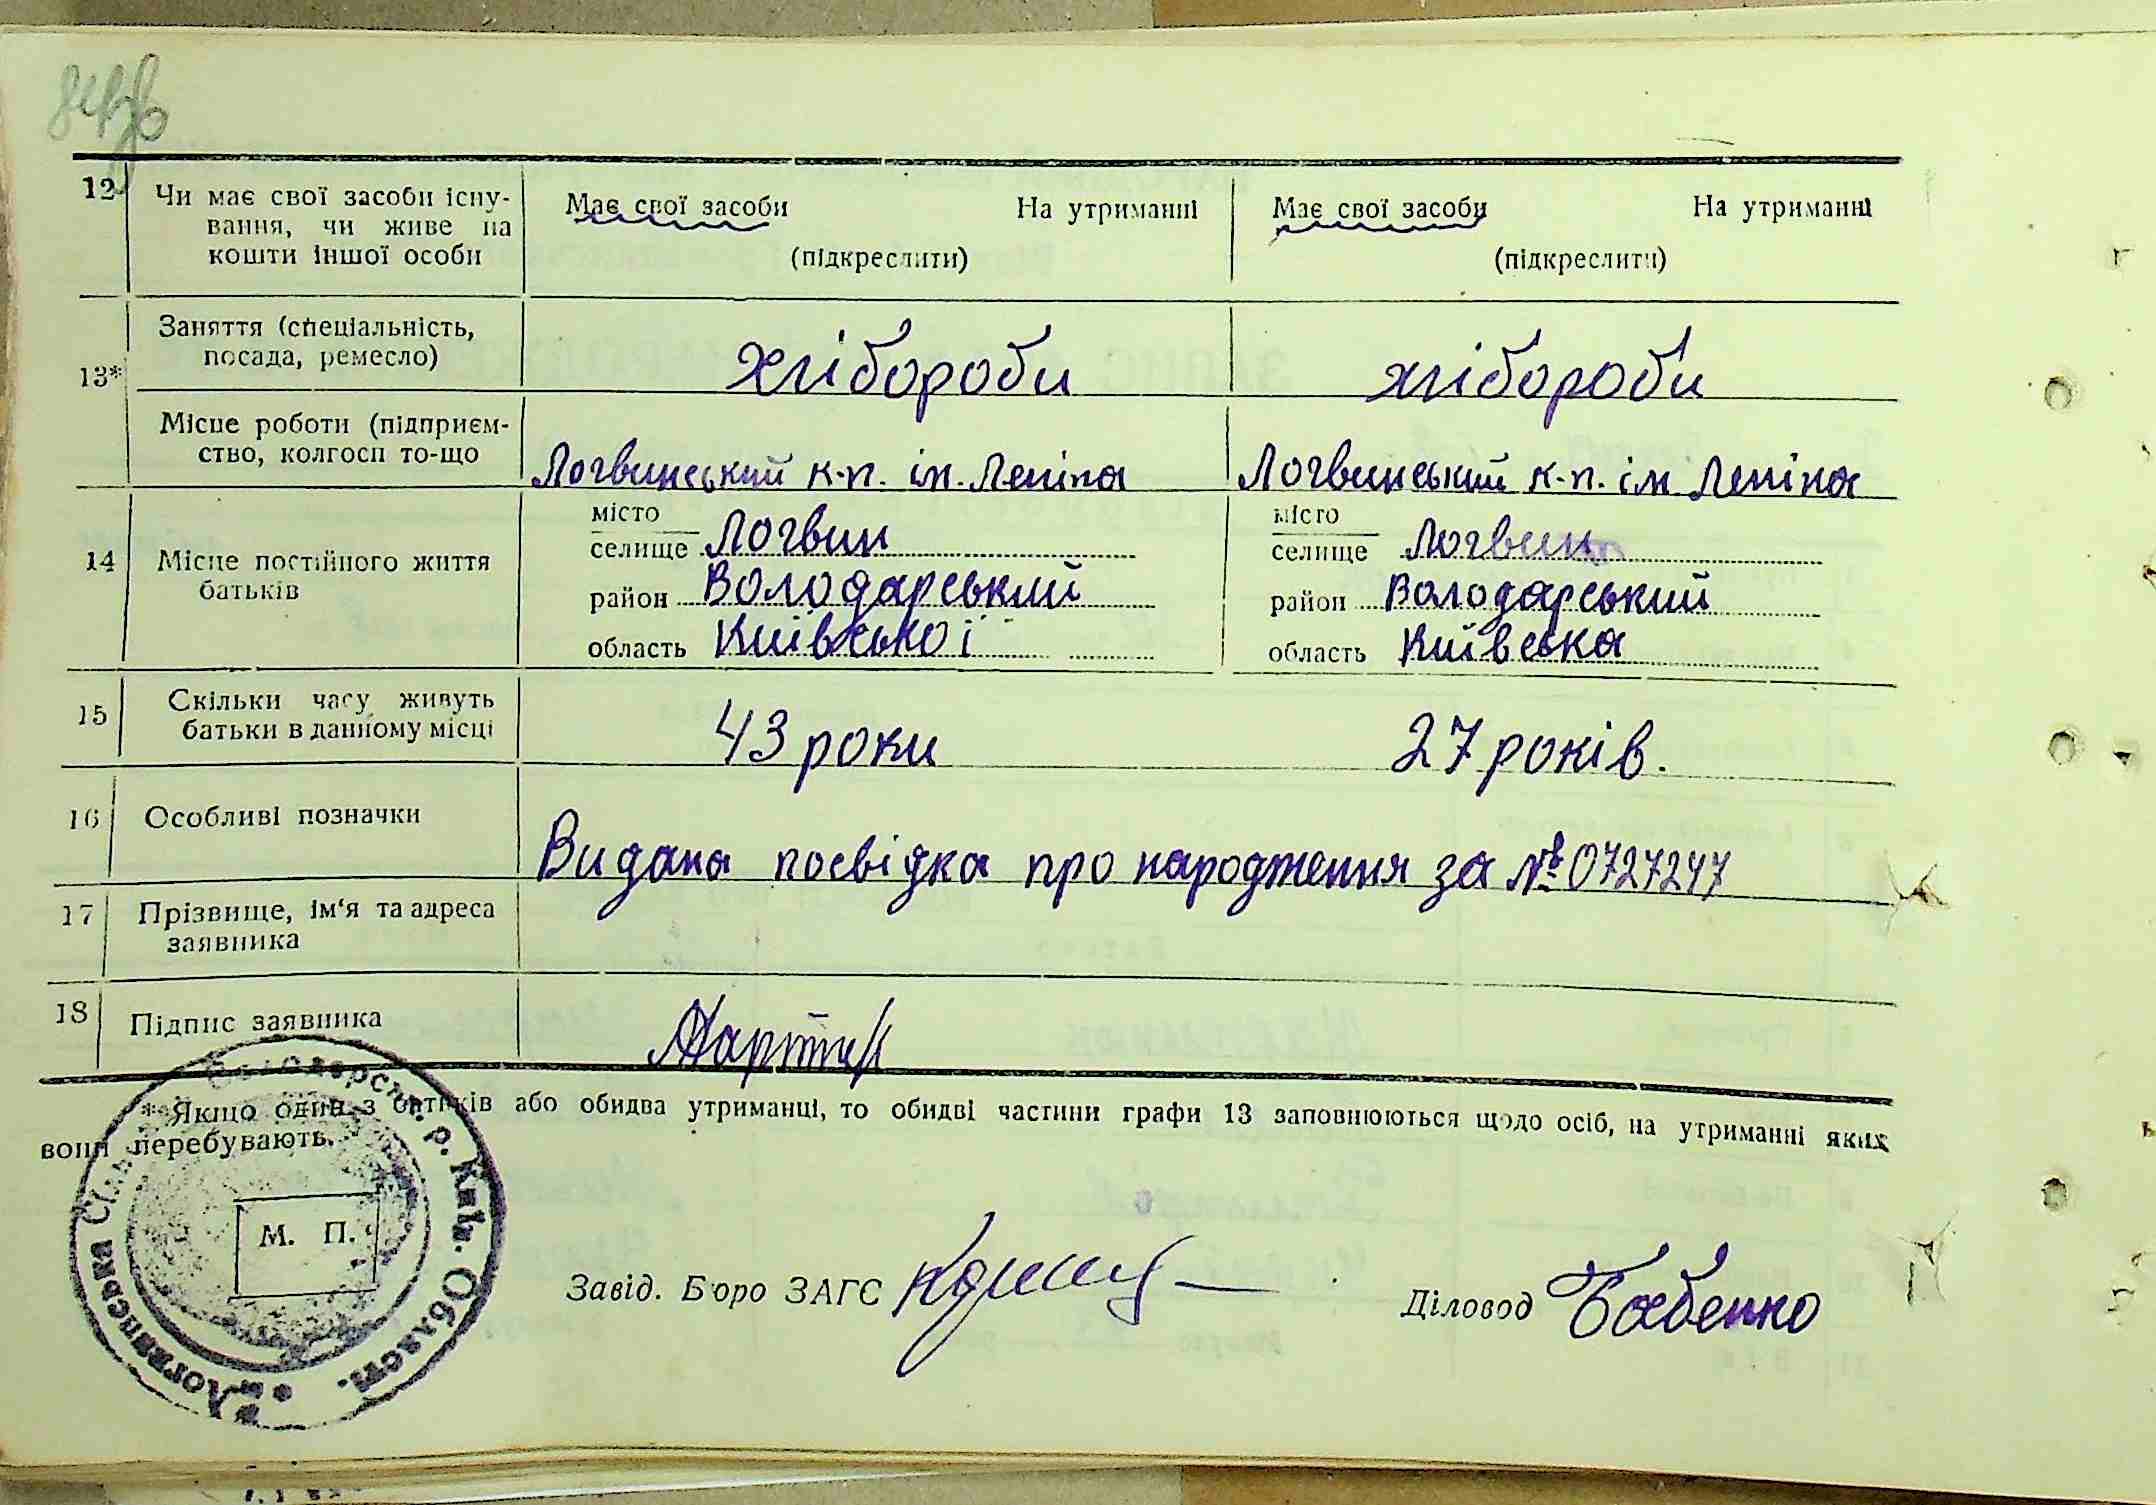 12 Чи має свої засоби існу-
вання, чи живе на
кошти іншої особи
Має свої засоби На утриманні
(підкреслити)
Має свої засоби На утриманні
(підкреслити)
13* Заняття (спеціальність,
посада, ремесло)
хліборобки
хліборобки
Місце роботи (підприєм-
ство, колгосп то-що
Логвинський к-п. ім. Леніна
Логвинський к-п. ім Леніна
14 Місце постійного життя
батьків
місто
селище Логвин
район Володарський
область Київської
місто
селище Логвин
район Володарський
область Київська
15 Скільки часу живуть
батьки в данному місці
43 роки
27 років.
16 Особливі позначки
Видана посвідка про народження за № 0727247
17 Прізвище, ім'я та адреса
заявника
18 Підпис заявника
* Якщо один з батьків або обидва утриманці, то обидві частини графи 13 заповнюються щодо осіб, на утриманні яких
вони перебувають.
М. П.
Завід. Бюро ЗАГС
Діловод Бабенко